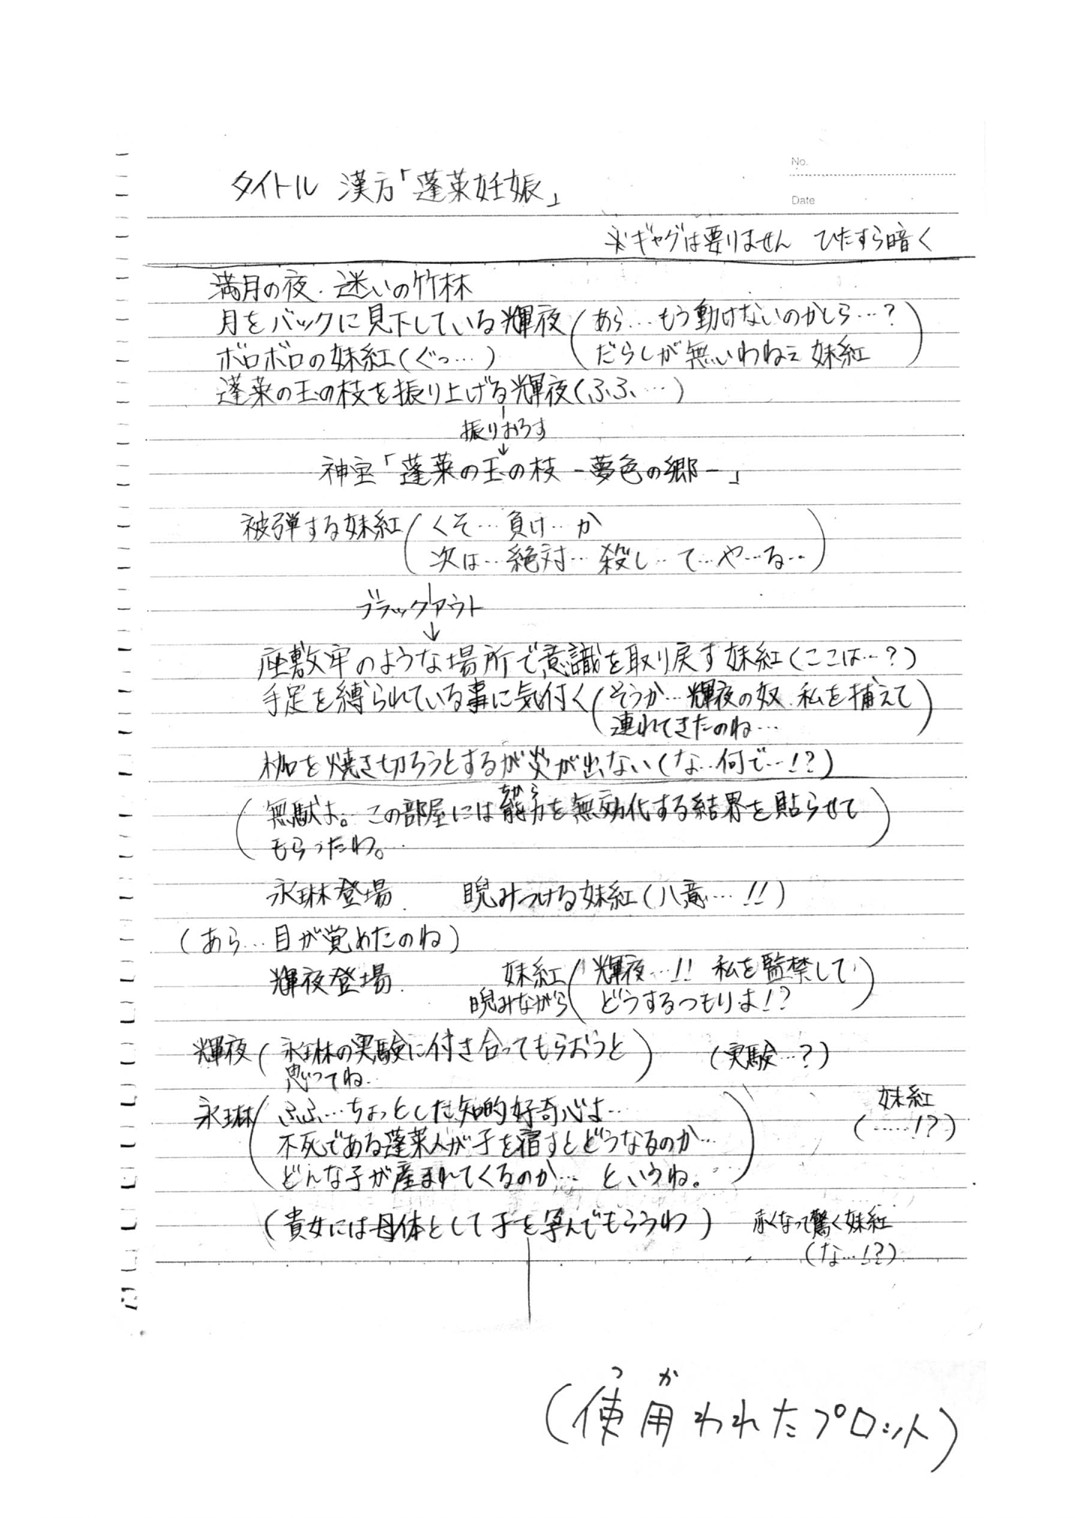 No.
タイトル 漢方「蓬莱妊娠」
Date
※ギャグは要りません ひたすら暗く
満月の夜、迷いの竹林
月をバックに見下している輝夜(あら…もう動けないのかしら…?
だらしが無いわねぇ妹紅)
ボロボロの妹紅(ぐっ…)
蓬莱の玉の枝を振り上げる輝夜(ふふ…)
振りおろす
神宝「蓬莱の玉の枝 -夢色の郷-」
被弾する妹紅(くそ…負け…か
次は…絶対…殺し…て…や…る…)
ブラックアウト
座敷牢のような場所で意識を取り戻す妹紅(ここは…?)
手足を縛られている事に気付く(そうか…輝夜の奴、私を捕えて
連れてきたのね…)
枷を焼き切ろうとするが炎が出ない(な…何で…!?)
(無駄よ。この部屋には能力を無効化する結界を貼らせて
ちから
もらったわ。)
永琳登場. 睨みつける妹紅(八意…!!)
(あら…目が覚めたのね)
輝夜登場. 妹紅(輝夜…!! 私を監禁して
睨みながら どうするつもりよ!?)
輝夜(永琳の実験に付き合ってもらおうと
思ってね…) (実験…?)
永琳(ふふ…ちょっとした知的好奇心よ…
不死である蓬莱人が子を宿すとどうなるのか…
どんな子が産まれてくるのか… というね。)
妹紅
(……!?)
(貴女には母体として子を孕んでもらうわ) 赤くなって驚く妹紅
(な…!?)
(使用われたプロット)
つか